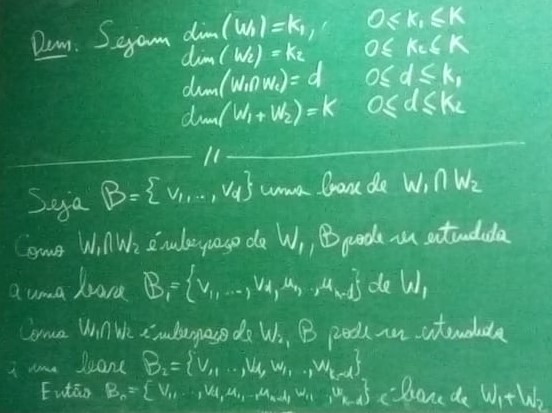 Dem. Sejam dim(W₁) = k₁, 0 ≤ k₁ ≤ k
dim(W₂) = k₂ 0 ≤ k₂ ≤ k
dim(W₁∩W₂) = d 0 ≤ d ≤ k₁
dim(W₁+W₂) = k 0 ≤ d ≤ k₂
Seja B = {v₁, ..., v_d} uma base de W₁∩W₂
Como W₁∩W₂ é subespaço de W₁, B pode ser estendida
a uma base B₁ = {v₁, ..., v_d, u₁, ..., u_{k-d}} de W₁
Como W₁∩W₂ é subespaço de W₂, B pode ser estendida
a uma base B₂ = {v₁, ..., v_d, w₁, ..., w_{k-d}}
Então B₀ = {v₁, ..., v_d, u₁, ..., u_{k-d}, w₁, ..., w_{k-d}} é base de W₁+W₂